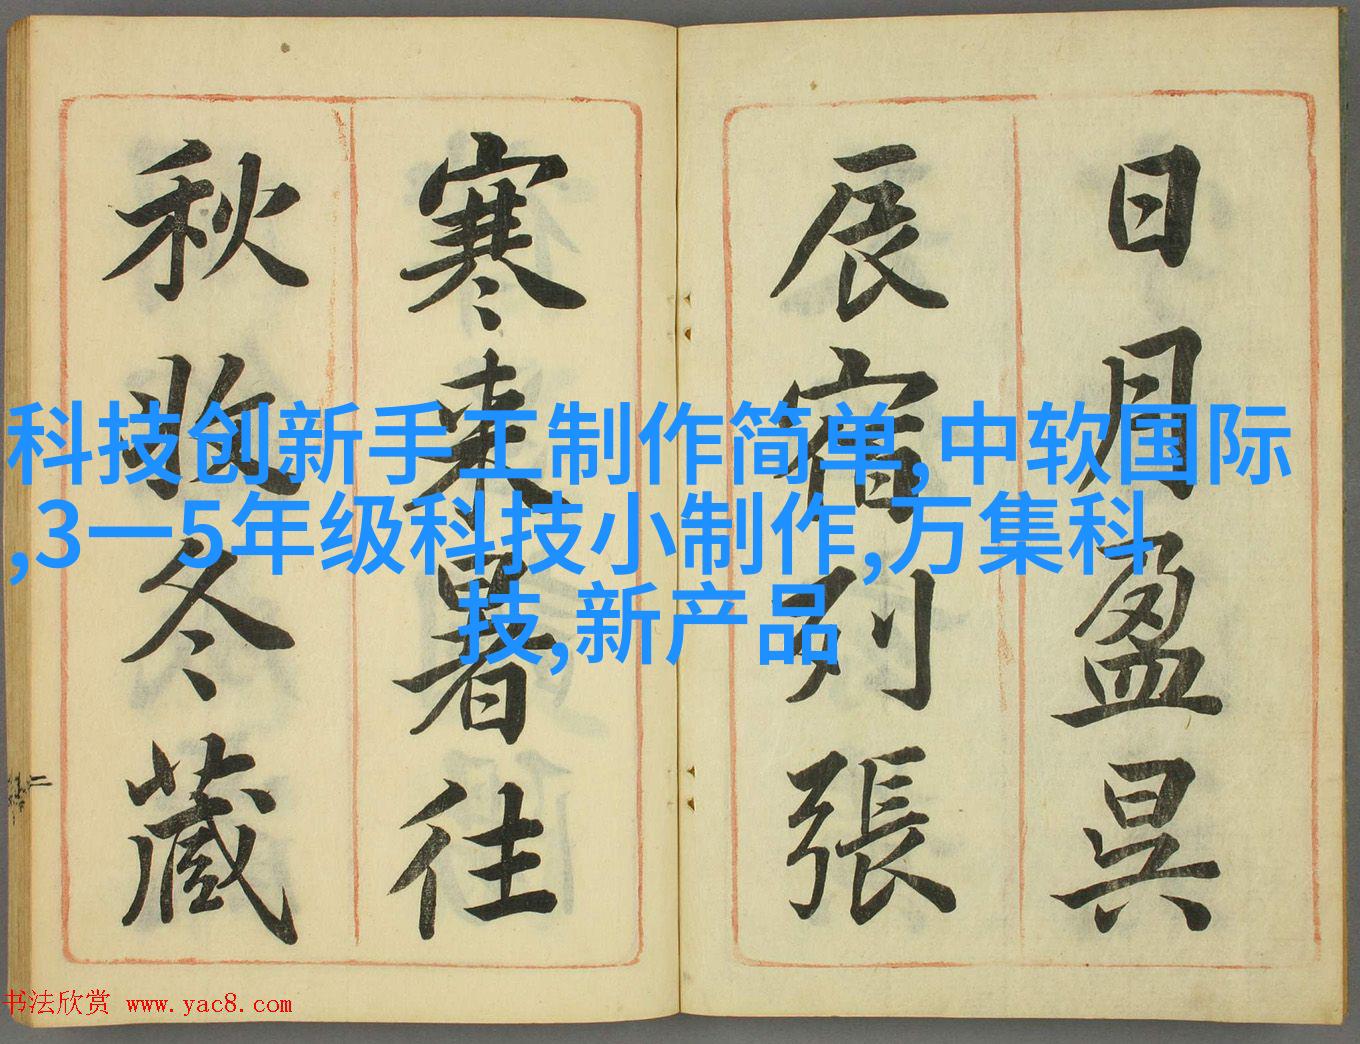 日月盈昃
辰宿列張
寒来暑往
秋收冬藏
科技创新手工制作简单,中软国际
,3一5年级科技小制作,万集科
技,新产品
二
书法欣赏 www.yac8.com